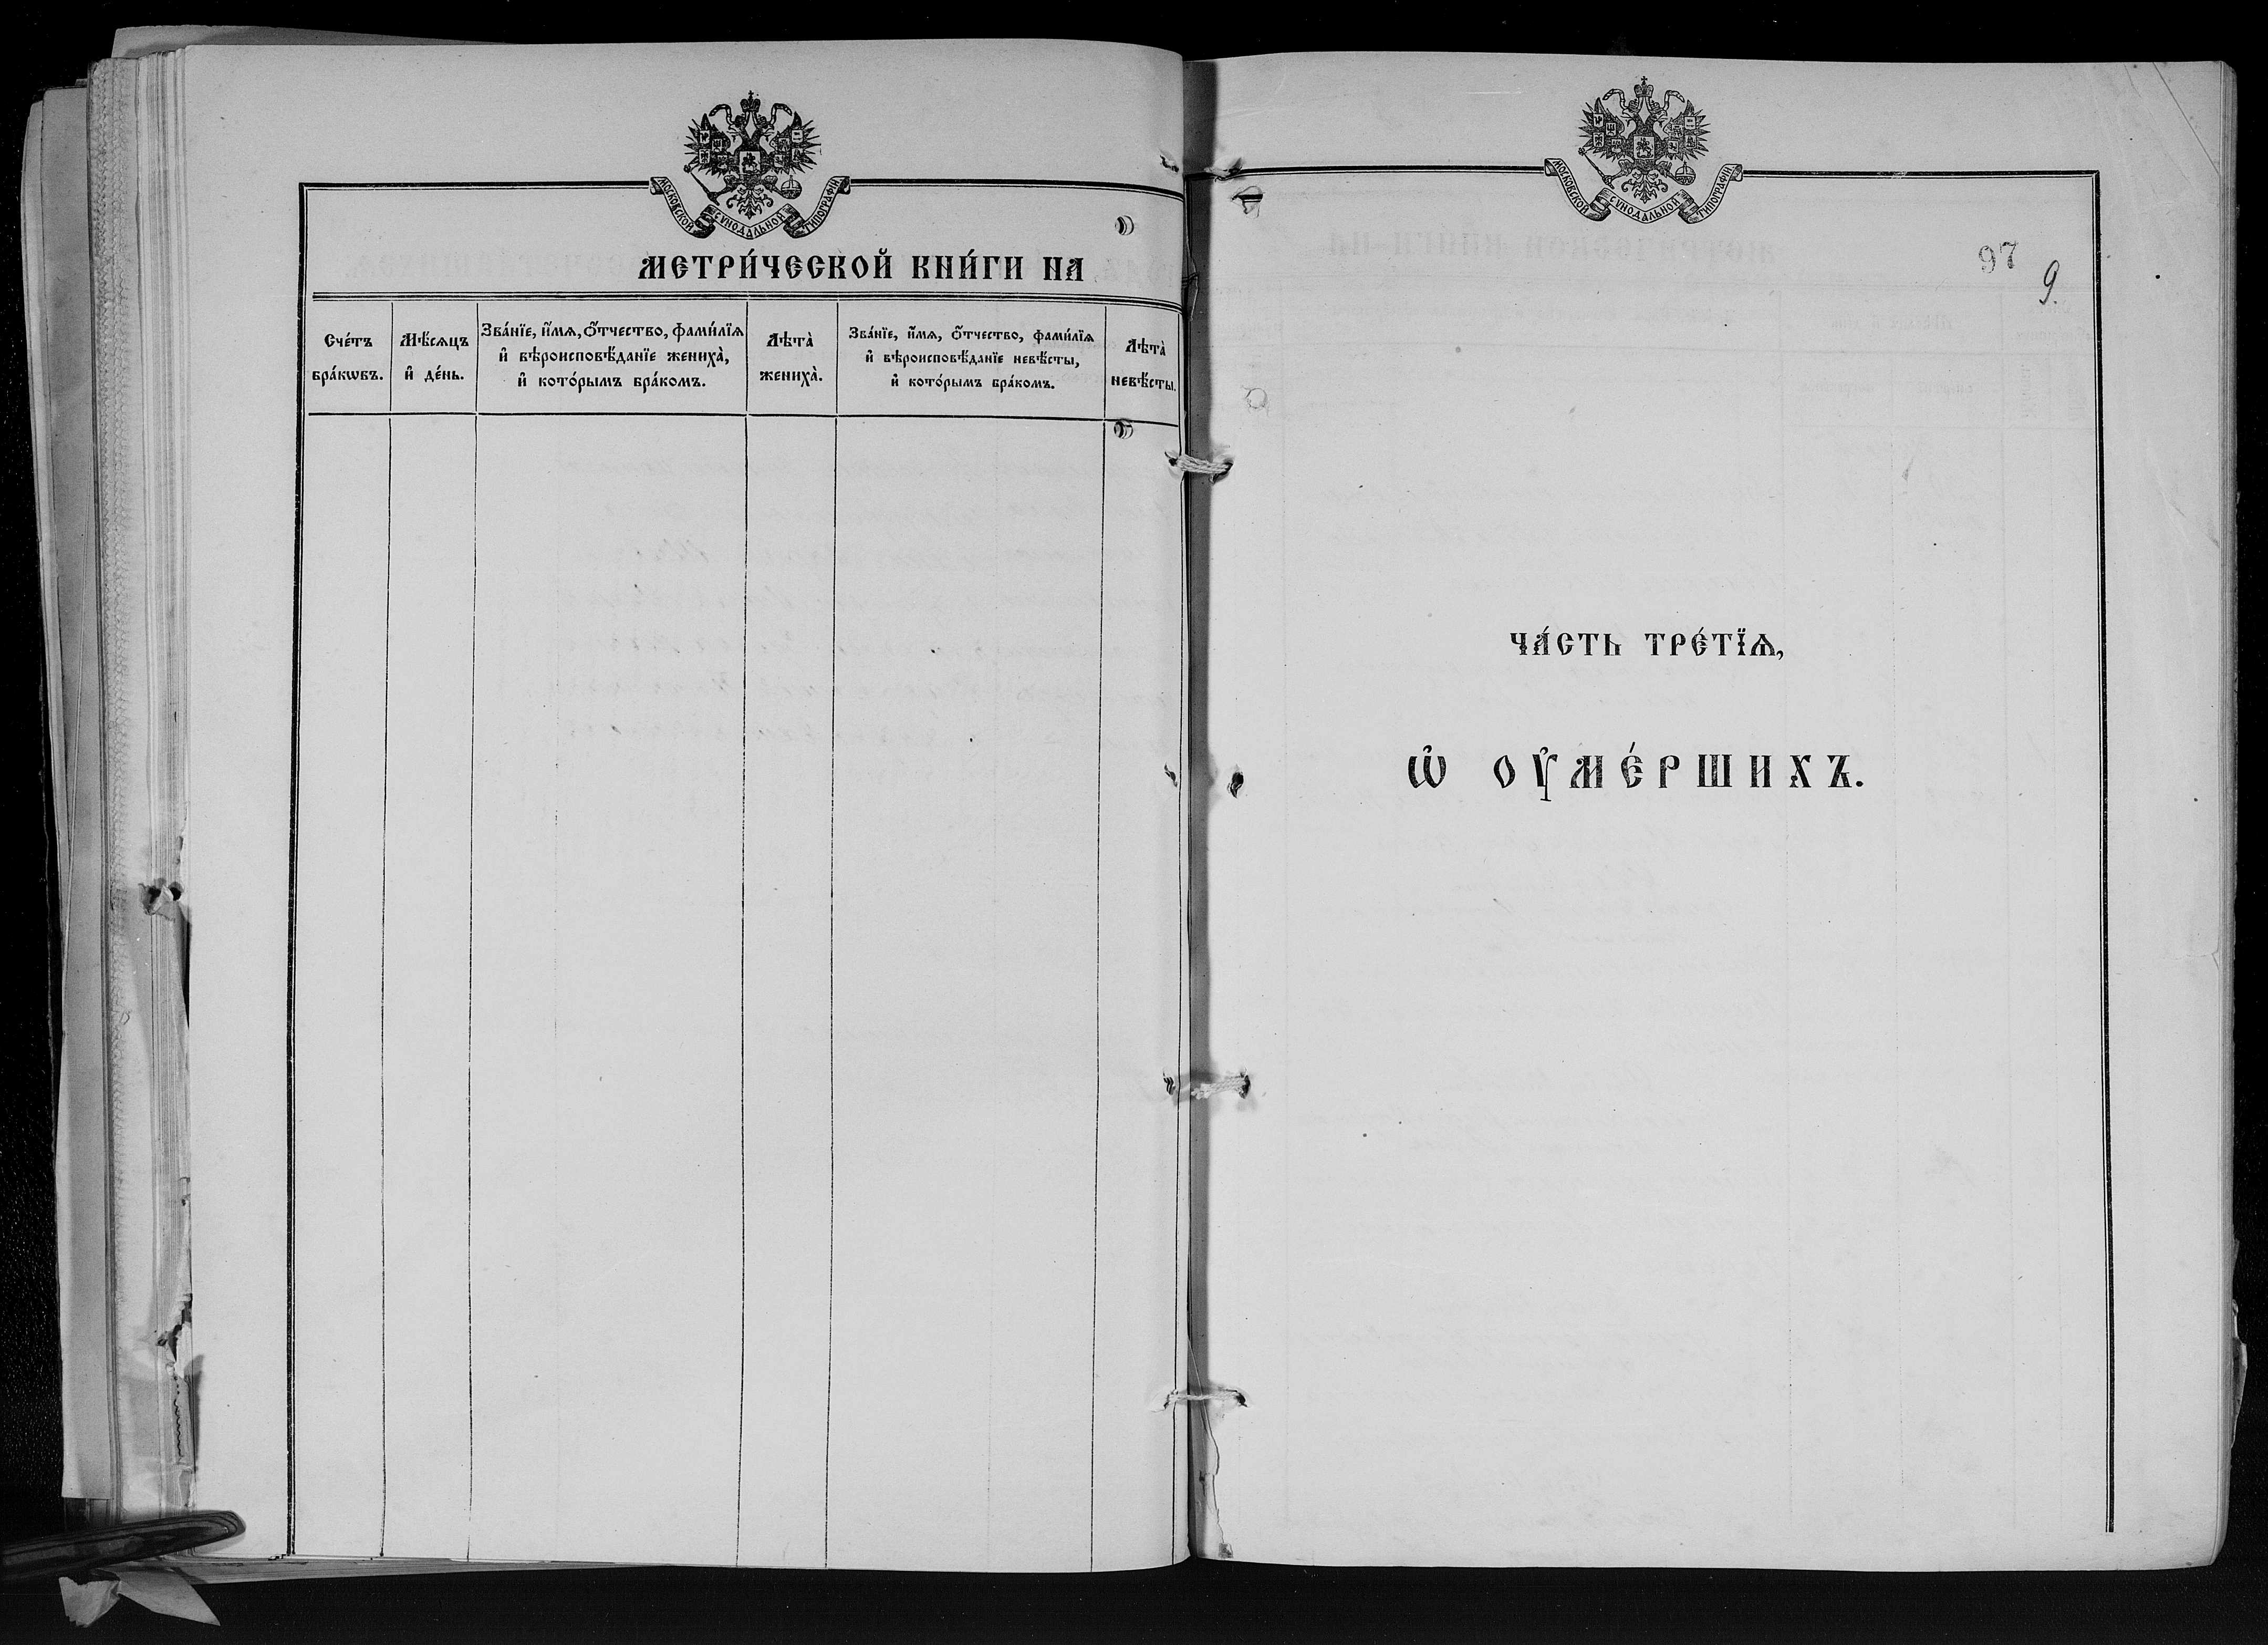 МОСКОВСКОЙ СѴНОДАЛЬНОЙ ТИПОГРАФІИ
МЕТРИ́ЧЕСКОЙ КНИ́ГИ НА
Сче́тъ
бра́кѡвъ.
Мѣ́сѧцъ
и҆ де́нь.
Зва́нїе, и҆́мѧ, ѻ҆́тчество, фами́лїѧ
и҆ вѣроисповѣ́данїе жениха̀,
и҆ кото́рымъ бра́комъ.
Лѣта̀
жениха̀.
Зва́нїе, и҆́мѧ, ѻ҆́тчество, фами́лїѧ
и҆ вѣроисповѣ́данїе невѣ́сты,
и҆ кото́рымъ бра́комъ.
Лѣта̀
невѣ́сты.
МОСКОВСКОЙ СѴНОДАЛЬНОЙ ТИПОГРАФІИ
97
9.
ЧА́СТЬ ТРЕ́ТЇѦ,
Ѡ҆ ОУ҆МЕ́РШИХЪ.